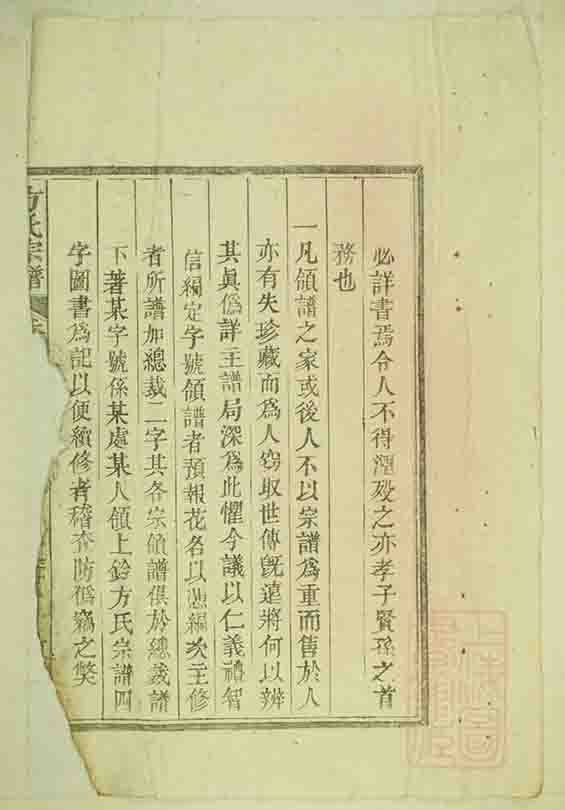 必詳書焉令人不得湮歿之亦孝子賢孫之首
務也
一凡領譜之家或後人不以宗譜爲重而售於人
亦有失珍藏而爲人窃取世傳旣遠將何以辨
其眞僞詳主譜局深爲此懼今議以仁義禮智
信編定字號領譜者預報花名以憑編次主修
者所譜加總裁二字其各宗領譜俱於總裁譜
下著某字號係某處某人領上鈐方氏宗譜四
字圖書爲記以便續修者稽查防僞竊之獘
方氏宗譜